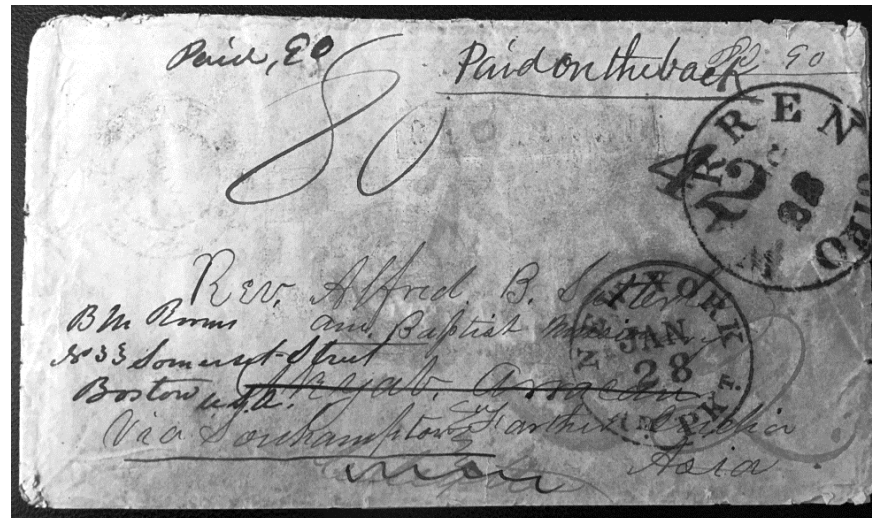 Paid, 90
Paid on the back
Pd 90
80
RREN
OHIO
28
Rev. Alfred B.
B M Rooms
Am. Baptist
No 33 Somerset Street
Boston U.S.A.
Akyab, Arracan
Via Southampton Farther India
Asia
NEW YORK
JAN
28
AM. PKT.